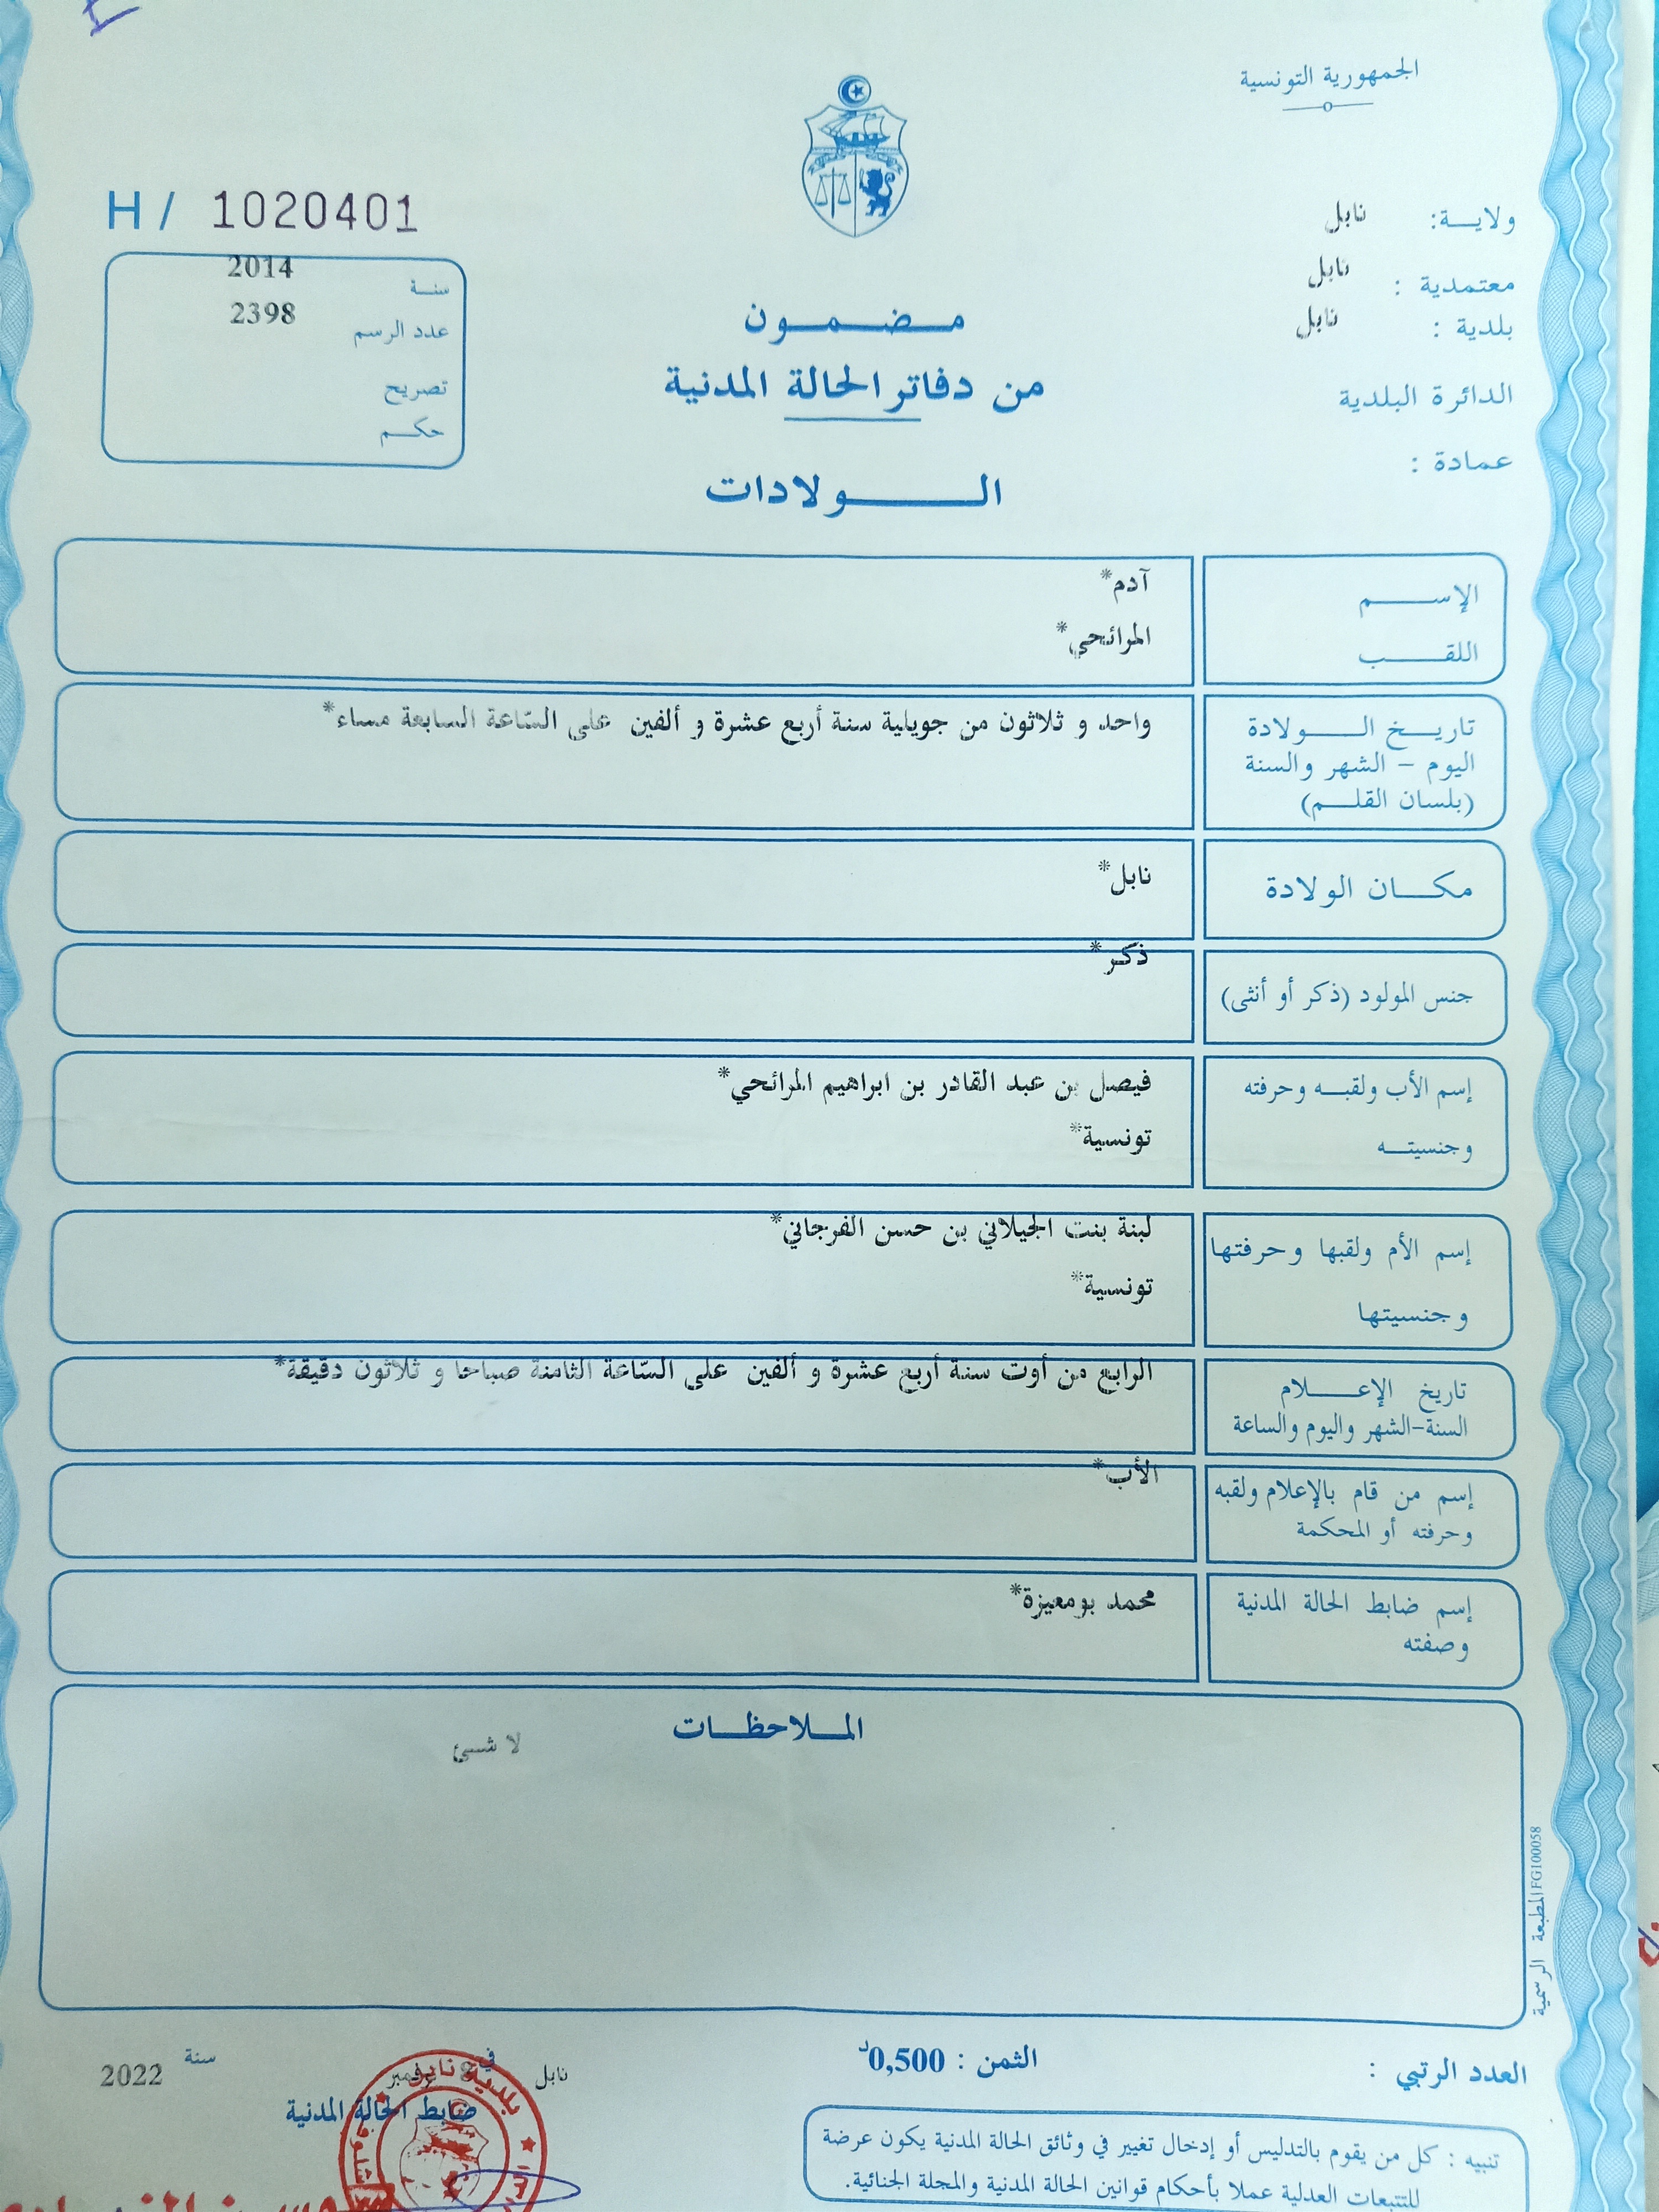 الجمهورية التونسية
H / 1020401
ولايـــة: نابل
معتمدية : نابل
بلدية : نابل
الدائرة البلدية
عمادة :
سنـــة 2014
عدد الرسم 2398
تصريح
حكـــم
مـــضـــمـــون
من دفاتر الحالة المدنية
الـــــولادات
الإســـــم آدم*
اللقـــــب المرائحي*
تاريـــخ الـــــولادة واحد و ثلاثون من جويلية سنة أربع عشرة و ألفين على السّاعة السابعة مساء*
اليوم – الشهر والسنة
(بلسان القلـــم)
مكـــان الولادة نابل*
جنس المولود (ذكر أو أنثى) ذكر*
إسم الأب ولقبـــه وحرفته فيصل بن عبد القادر بن ابراهيم المرائحي*
وجنسيتـــه تونسية*
إسم الأم ولقبها وحرفتها لبنة بنت الجيلاني بن حسن الفرجاني*
وجنسيتها تونسية*
تاريخ الإعـــــلام الرابع من أوت سنة أربع عشرة و ألفين على السّاعة الثامنة صباحا و ثلاثون دقيقة*
السنة-الشهر واليوم والساعة
إسم من قام بالإعلام ولقبه الأب*
وحرفته أو المحكمة
إسم ضابط الحالة المدنية محمد بومعيزة*
وصفته
الملاحظـــات
لا شـئ
المطبعة الرسمية FG100058
العدد الرتبي :
الثمن : 0,500د
نابل في 8 نوفمبر سنة 2022
ضابط الحالة المدنية
بلدية نابل
تنبيه : كل من يقوم بالتدليس أو إدخال تغيير في وثائق الحالة المدنية يكون عرضة
للتتبعات العدلية عملا بأحكام قوانين الحالة المدنية والمجلة الجنائية.